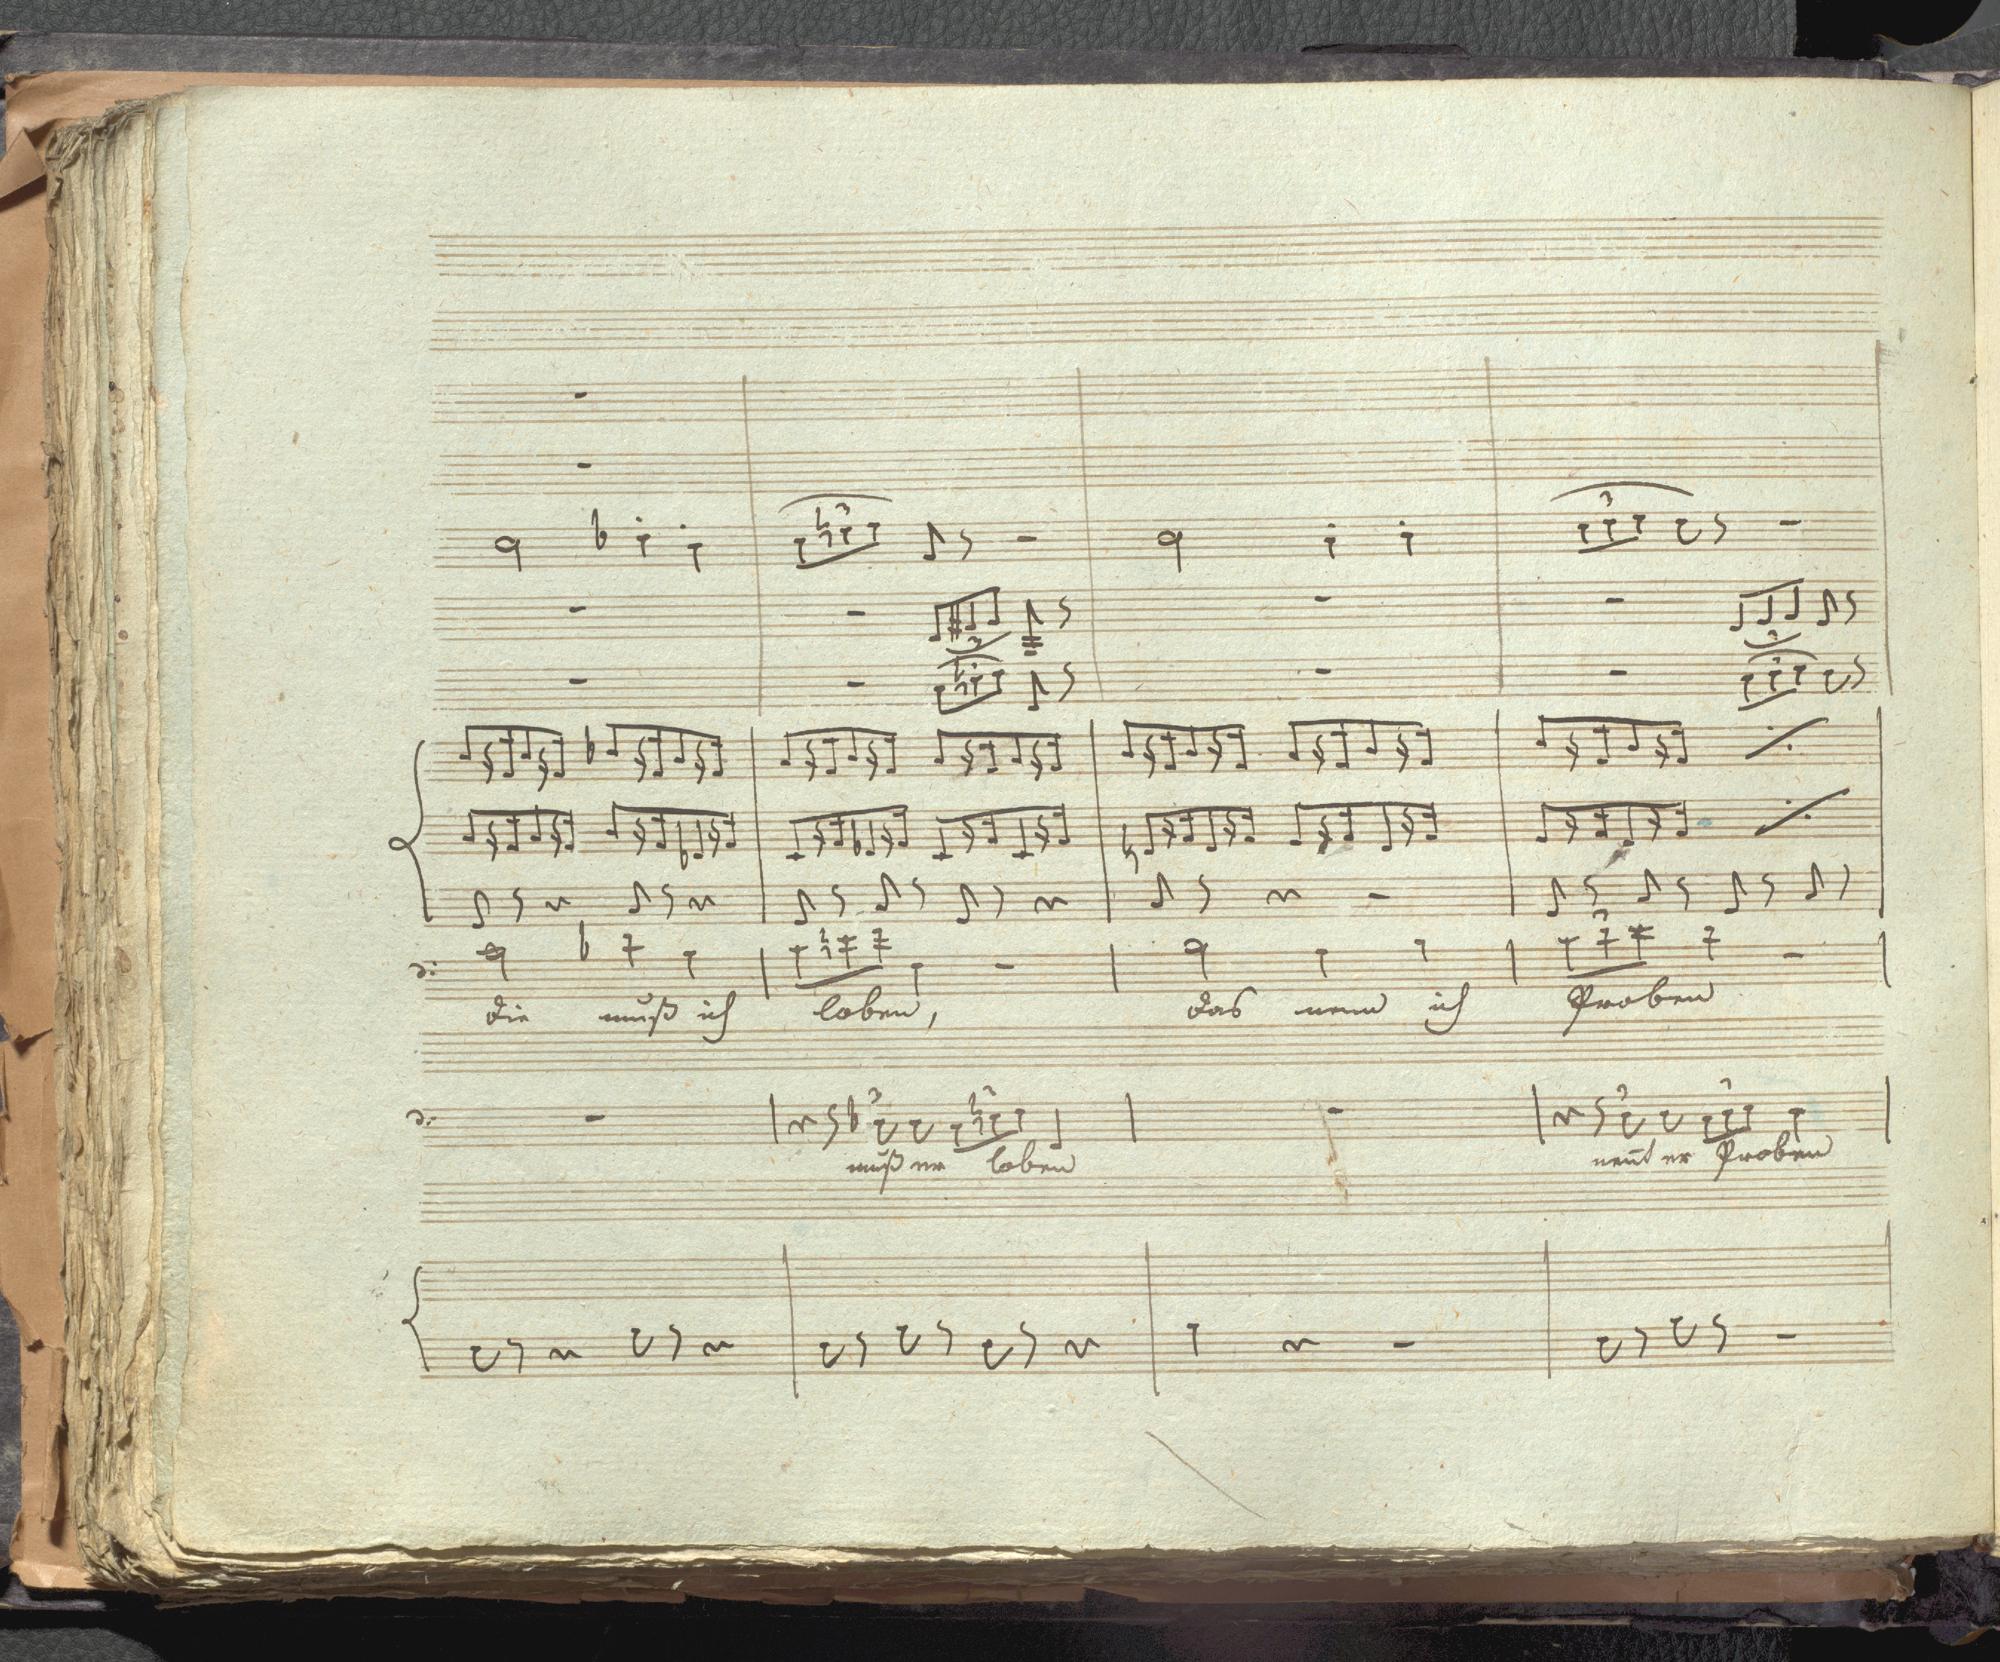 die muß ich loben, das nenn ich Proben
muß er loben nen̄t er Proben